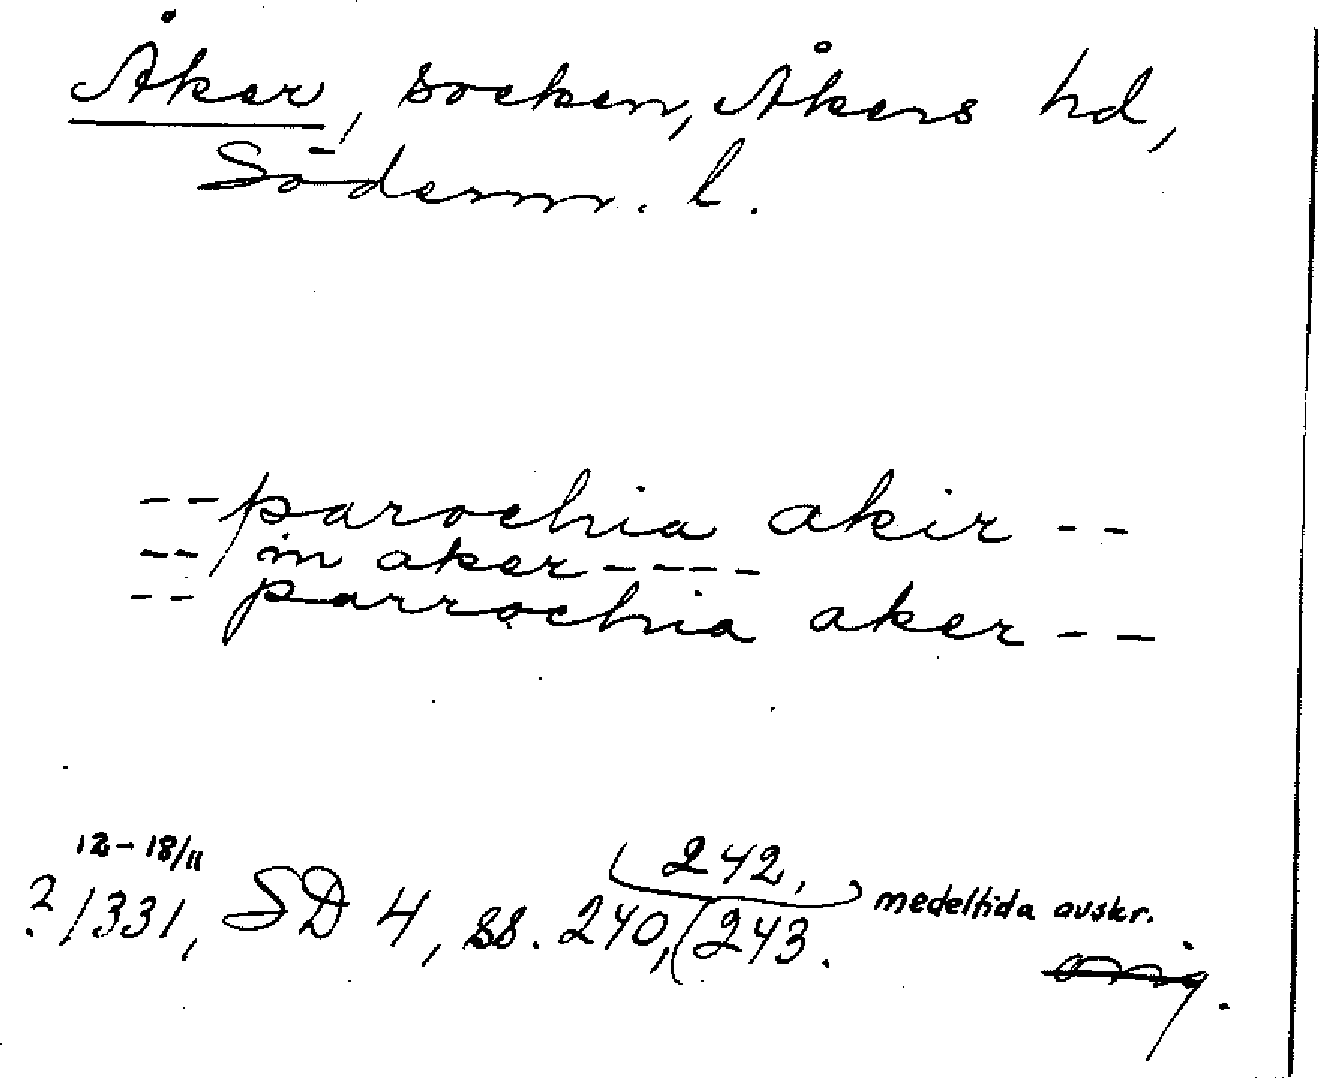 Åker, socken, Åkers hd,
Söderm. l.
-- parochia akir --
-- in aker ----
-- parrochia aker --
12-18/11
? 1331, SD 4, ss. 240, 242, 243. medeltida avskr.
orig.